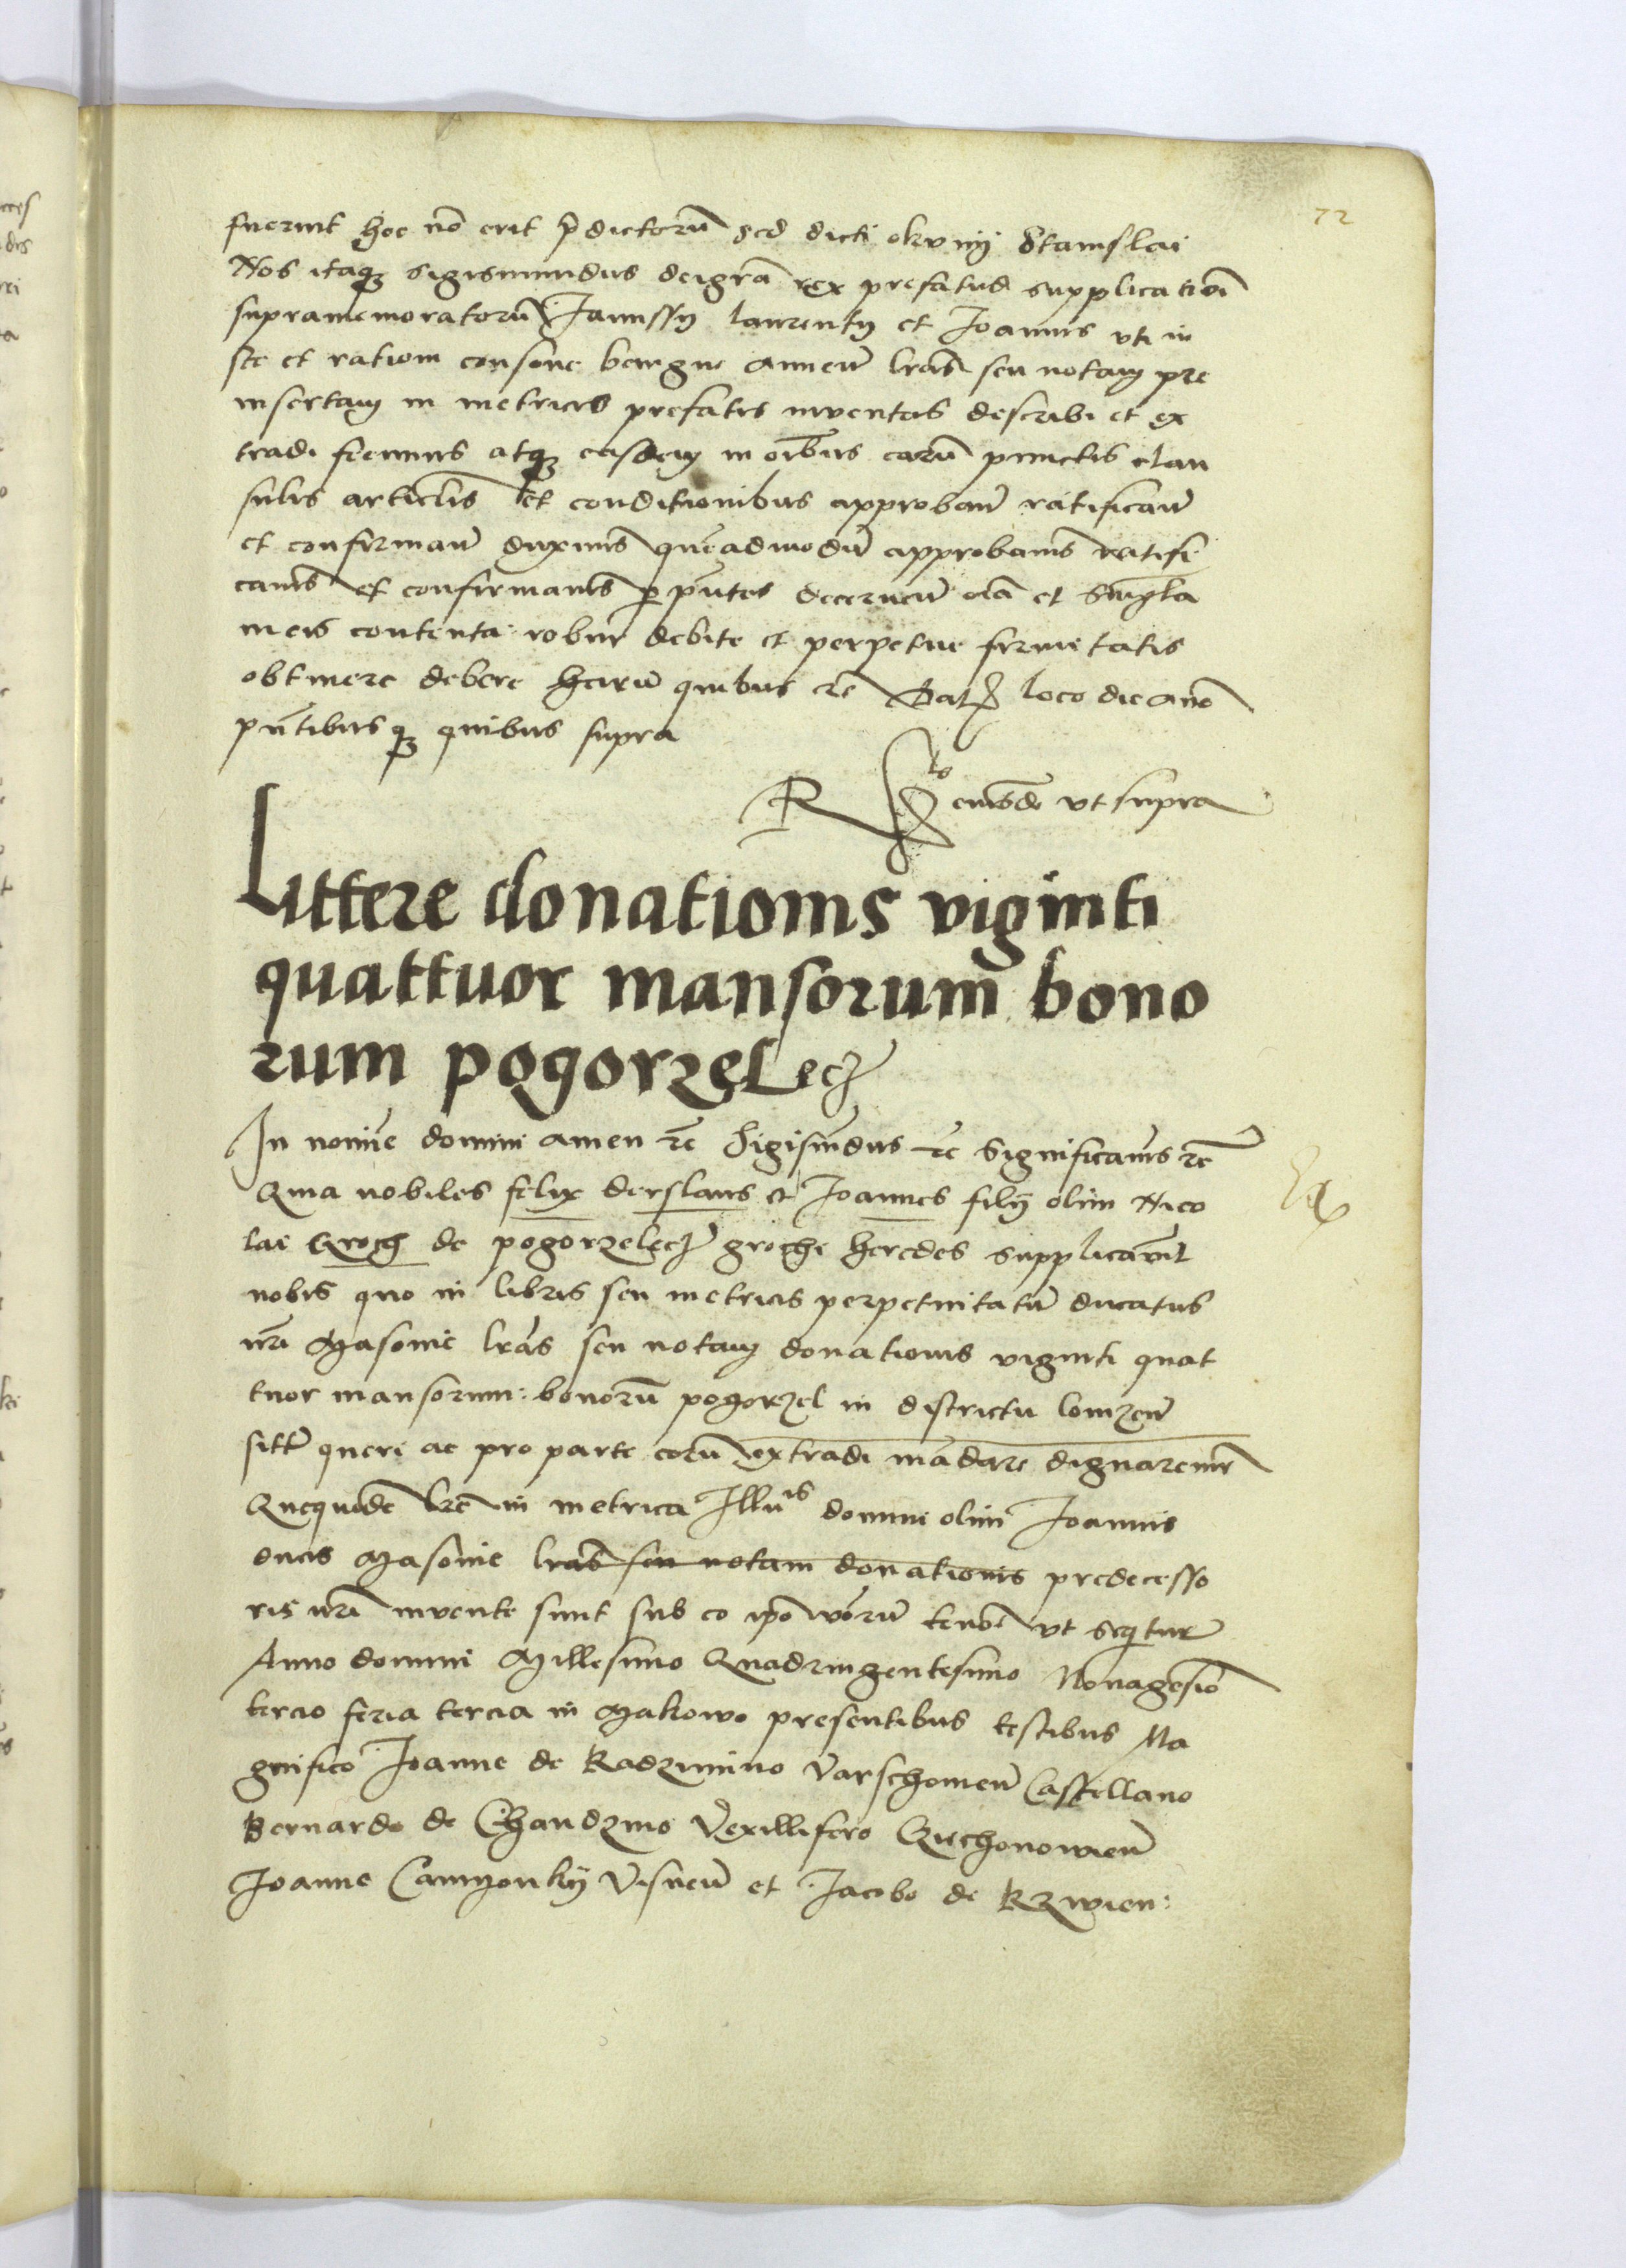 72
fuerint hoc nõ erit p̃dictorũ sed dicti okuniy Stanislai
Nos itaqꝫ Sigismundus dei grã rex prefatus supplicatiõi
supramemoratorũ Janussij laurentij et Joannis vti iu
ste et rationi consone benigne annueñ lrãs seu notam pre
insertam in metricis prefatis inventas describi et ex
tradi fecimus atqꝫ easdem in oĩbus earũ punctis clau
sulis articlis et conditionibus approbañ ratificañ
et confirmañ duximus quẽadmodũ approbamus ratifi
camus et confirmamus p pñtes decerneñ oĩa et singla
in eis contenta robur debite et perpetue firmitatis
obtinere debere harũ quibus rẽ Dat loco die anno
pñtibusqꝫ quibus supra
R eiusdẽ vt supra
Littere donationis viginti
quattuor mansorum bono
rum pogorzelecz
In nomĩe domini amen rẽ Sigismũdus rẽ Significamus rẽ
Quia nobiles felix derslaus et Joannes filij olim Nico
lai Groch de pogorzelecz groche heredes supplicarũt
nobis quo in libris seu metricis perpetuitatũ ducatus
nr̃i Masovie lrãs seu notam donationis viginti quat
tuor mansorum bonorũ pogorzel in districtu lomzeñ
sitt queri ac pro parte eorũ extradi mãdare dignaremur
Quequidẽ lrẽ in metrica Illuis domini olim Joannis
ducis Masovie lrãs seu notam donationis predecesso
ris nr̃i invente sunt sub eo ipo verborũ tenoẽ vt seqitur
Anno domini Millesimo Quadringentesimo Nonagesiõ
tercio feria tercia in Makowo presentibus testibus Ma
gnifico Joanne de Radzimino Varschovieñ Castellano
Bernardo de Chandzino Vexillifero Czechonowieñ
Joanne Camyonky Visneñ et Jacobo de Krzwien